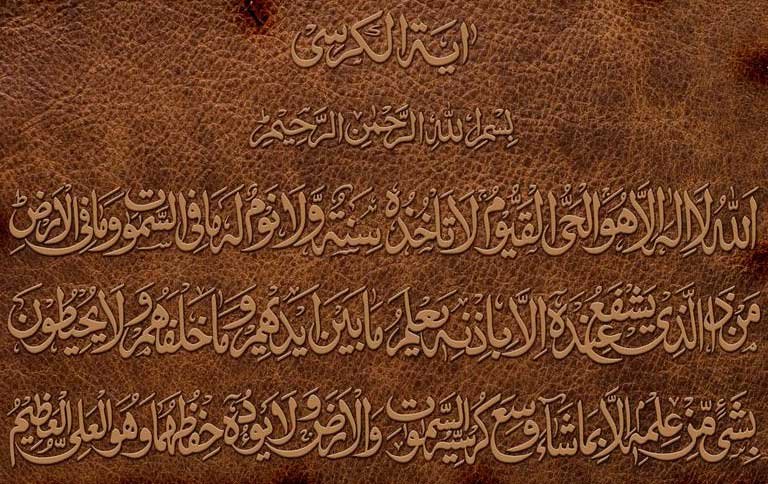 اية الكرسى
بسم الله الرحمن الرحيم
الله لا اله الا هو الحى القيوم لا تاخذه سنة ولا نوم له ما فى السموت وما فى الارض
من ذا الذى يشفع عنده الا باذنه يعلم ما بين ايديهم وما خلفهم ولا يحيطون
بشئ من علمه الا بما شاء وسع كرسيه السموت والارض ولا يوده حفظهما وهو العلى العظيم